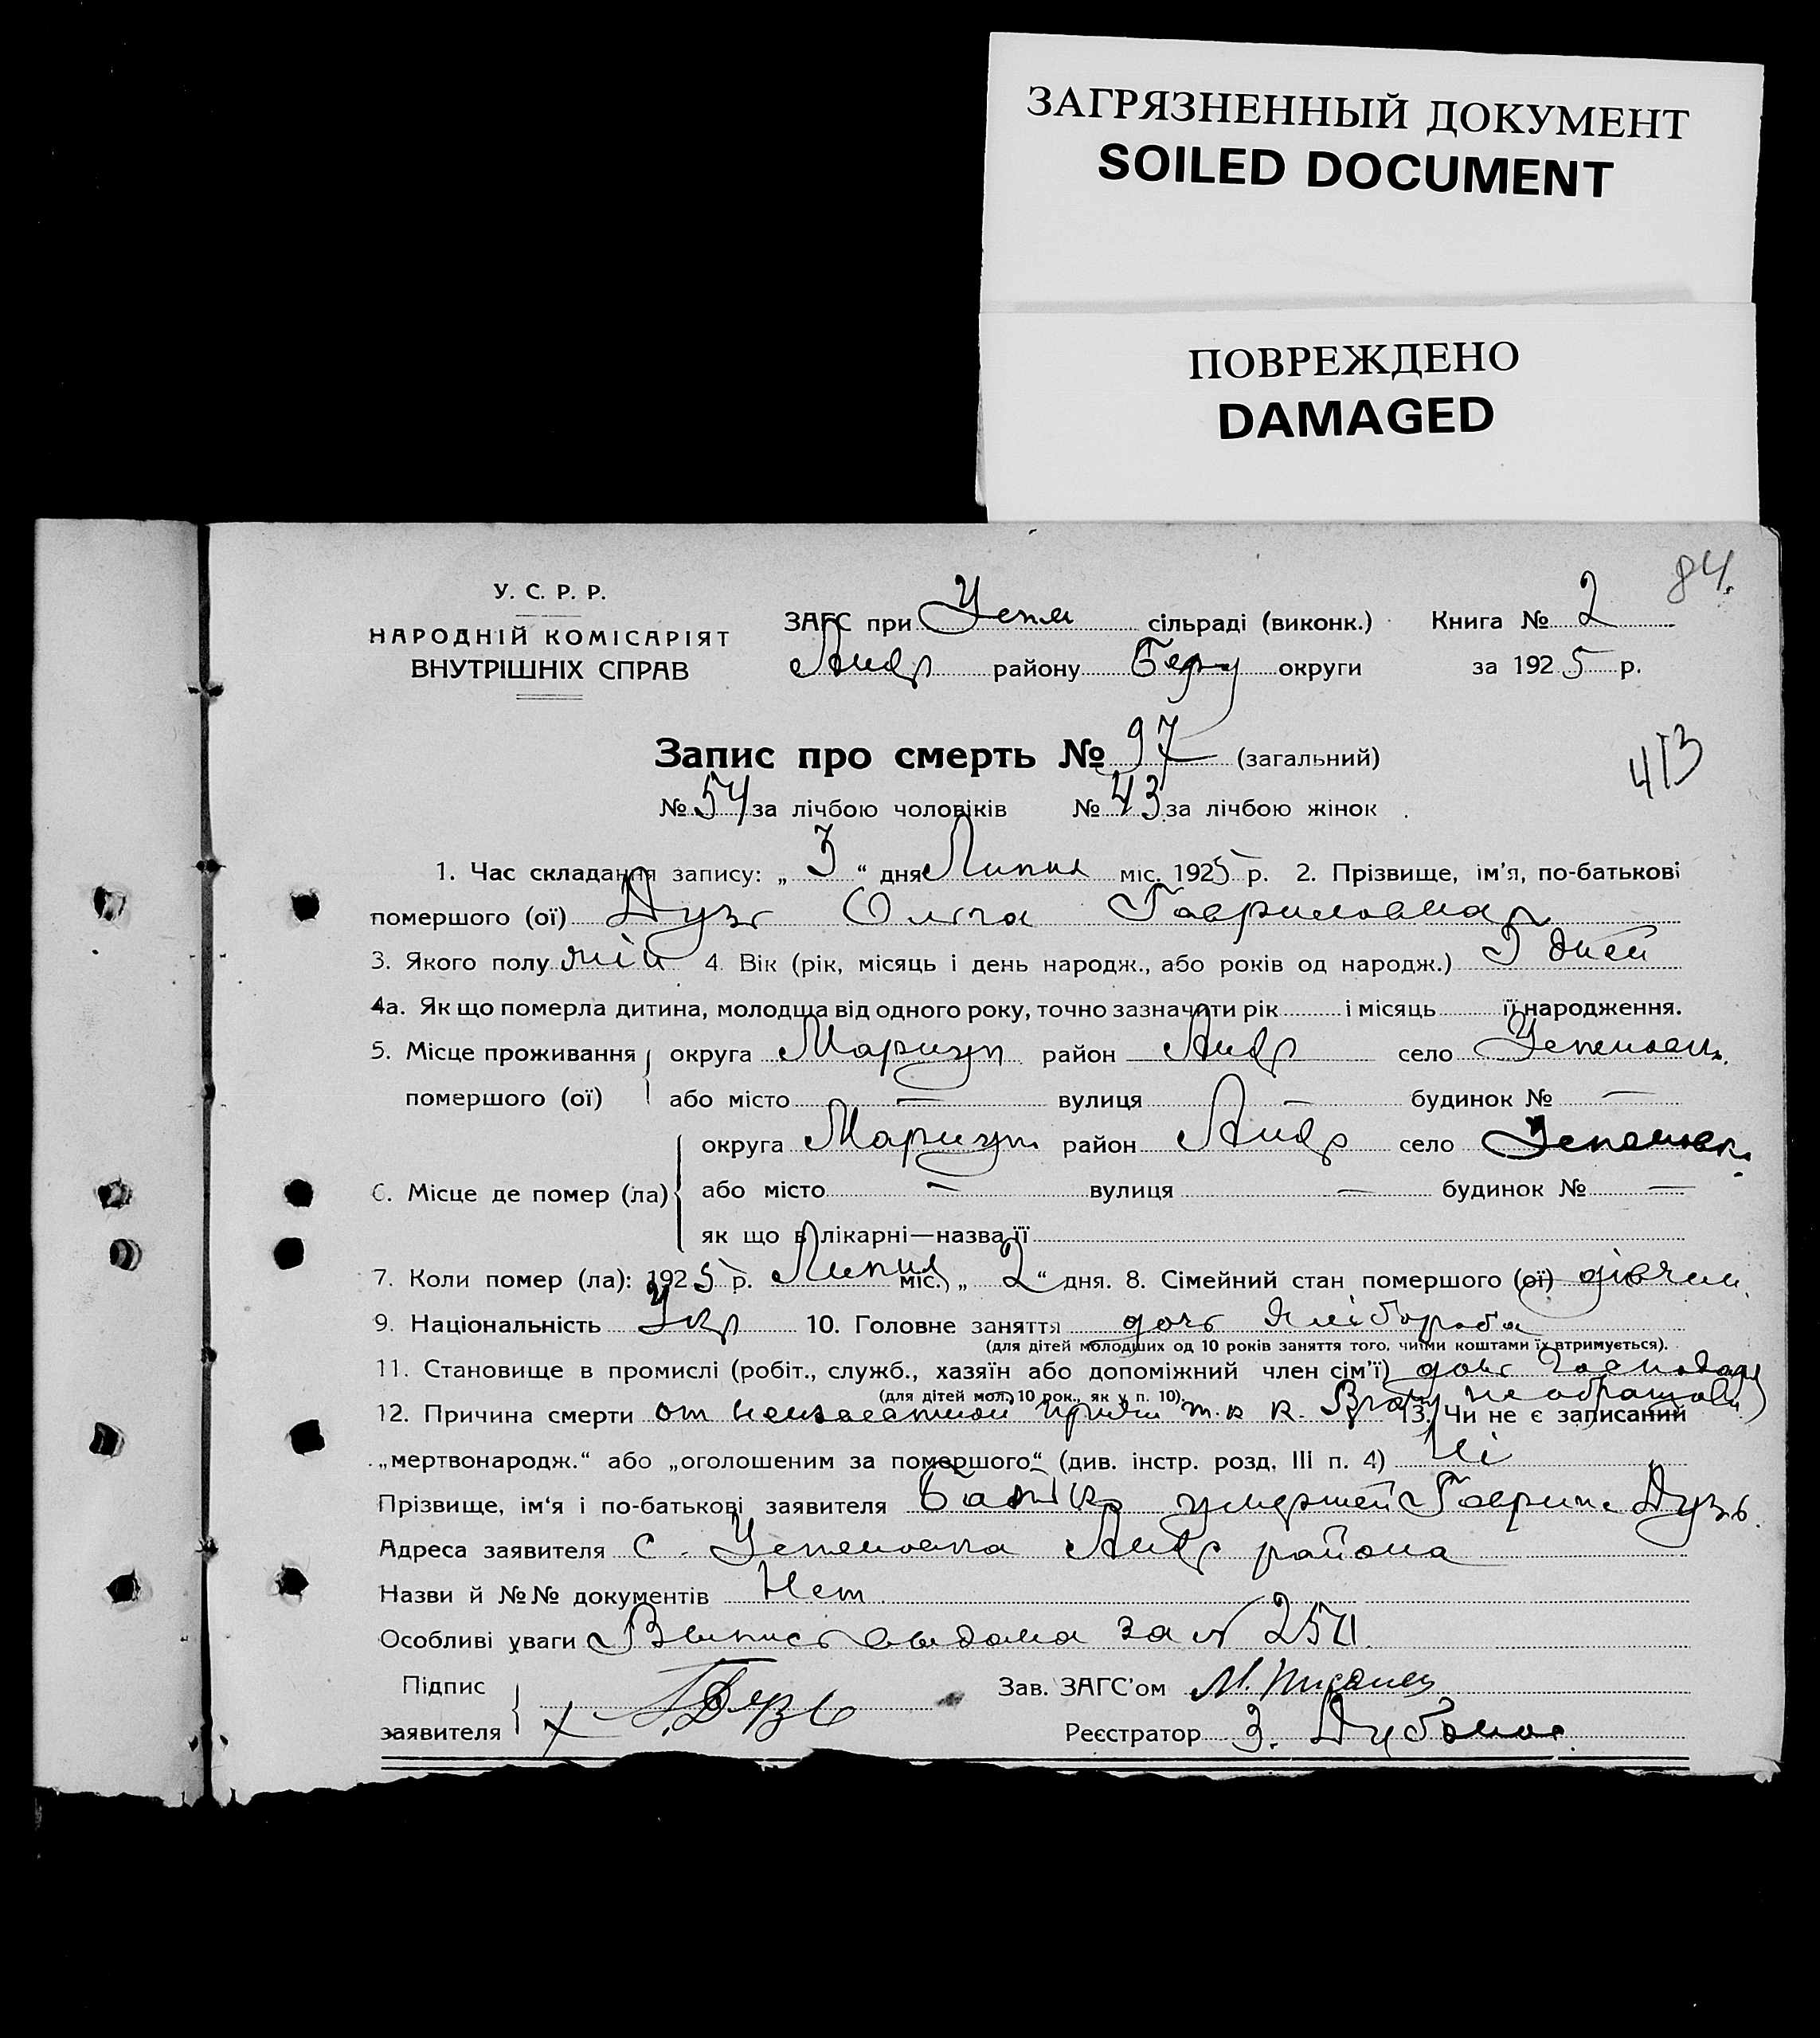 ЗАГРЯЗНЕННЫЙ ДОКУМЕНТ
SOILED DOCUMENT
ПОВРЕЖДЕНО
DAMAGED
84.
У. С. Р. Р.
НАРОДНІЙ КОМІСАРІЯТ
ВНУТРІШНІХ СПРАВ
ЗАГС при Успе сільраді (виконк.) Книга № 2
Андр району округи за 1925 р.
Запис про смерть № 97 (загальний)
413
№ 54 за лічбою чоловіків № 43 за лічбою жінок
1. Час складання запису: „ 3 “ дня Липня міс. 1925 р. 2. Прізвище, ім’я, по-батькові
помершого (ої) Дузь Ольга Гавриловна
3. Якого полу жін 4. Вік (рік, місяць і день народж., або років од народж.) 5 дней
4а. Як що померла дитина, молодща від одного року, точно зазначати рік і місяць її народження.
5. Місце проживання округа Мариуп район Андр село Успеновк.
помершого (ої) або місто — вулиця — будинок № —
округа Мариуп район Андр село Успеновк.
6. Місце де помер (ла) або місто — вулиця — будинок № —
як що в лікарні—назва її
7. Коли помер (ла): 1925 р. Липня міс. „ 2 “ дня. 8. Сімейний стан помершого (ої) дівчин.
9. Національність Укр 10. Головне заняття дочь Хлібороба
(для дітей молодших од 10 років заняття того, чиїми коштами їх втримується).
11. Становище в промислі (робіт., служб., хазяїн або допоміжний член сім’ї) дочь Господар
(для дітей мол. 10 рок., як у п. 10).
12. Причина смерти от неизвестной т. к к. Врачу не обращови) 13. Чи не є записаний
„мертвонародж.“ або „оголошеним за помершого“ (див. інстр. розд. III п. 4) Ні
Прізвище, ім‘я і по-батькові заявителя Батько умершей Гаврил Дузь.
Адреса заявителя с. Успеновка Андр района
Назви й №№ документів Нет
Особливі уваги Выпись выдана за № 254.
Підпис Зав. ЗАГС’ом М.
заявителя Х Г. Дузь Реєстратор З.